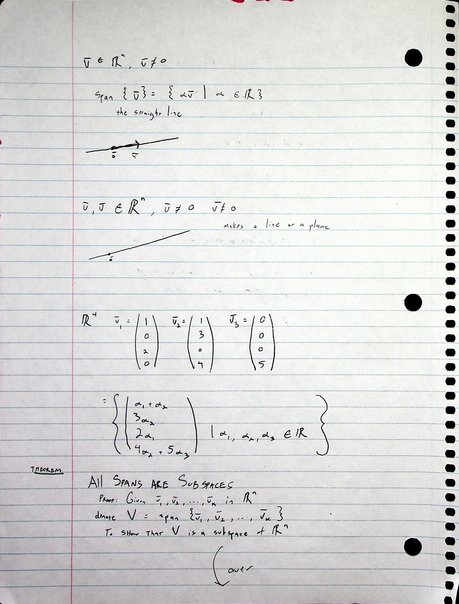 v̄ ∈ ℝⁿ, v̄ ≠ 0
span { v̄ } = { αv̄ | α ∈ ℝ }
the straight line
0̄ v̄
ū, v̄ ∈ ℝⁿ, ū ≠ 0 v̄ ≠ 0
makes a line or a plane
ℝ⁴ v̄₁ = (1 0 2 0) v̄₂ = (1 3 0 4) v̄₃ = (0 0 0 5)
= { (α₁ + α₂
3α₂
2α₁
4α₂ + 5α₃) | α₁, α₂, α₃ ∈ ℝ }
THEOREM
All SPANS ARE SUBSPACES
Proof: Given v̄₁, v̄₂, ..., v̄ₖ in ℝⁿ
denote V = span { v̄₁, v̄₂, ..., v̄ₖ }
To show that V is a subspace of ℝⁿ
over